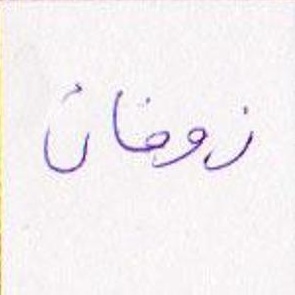 زوخان